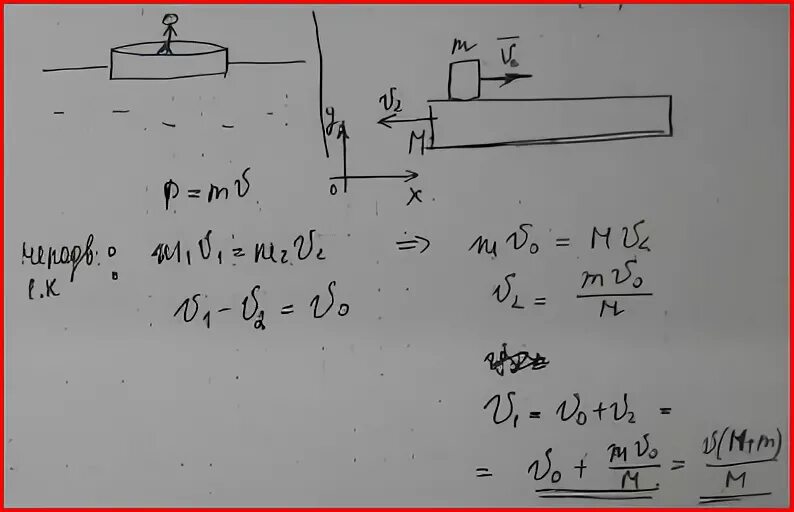 m v₀
v₂
M
y
0 x
p = mv
неподв. :
с.к
m₁v₁ = m₂v₂ => mv₀ = Mv₂
v₁ - v₂ = v₀
v₂ = mv₀/M
v₁ = v₀ + v₂ =
= v₀ + mv₀/M = v(M+m)/M